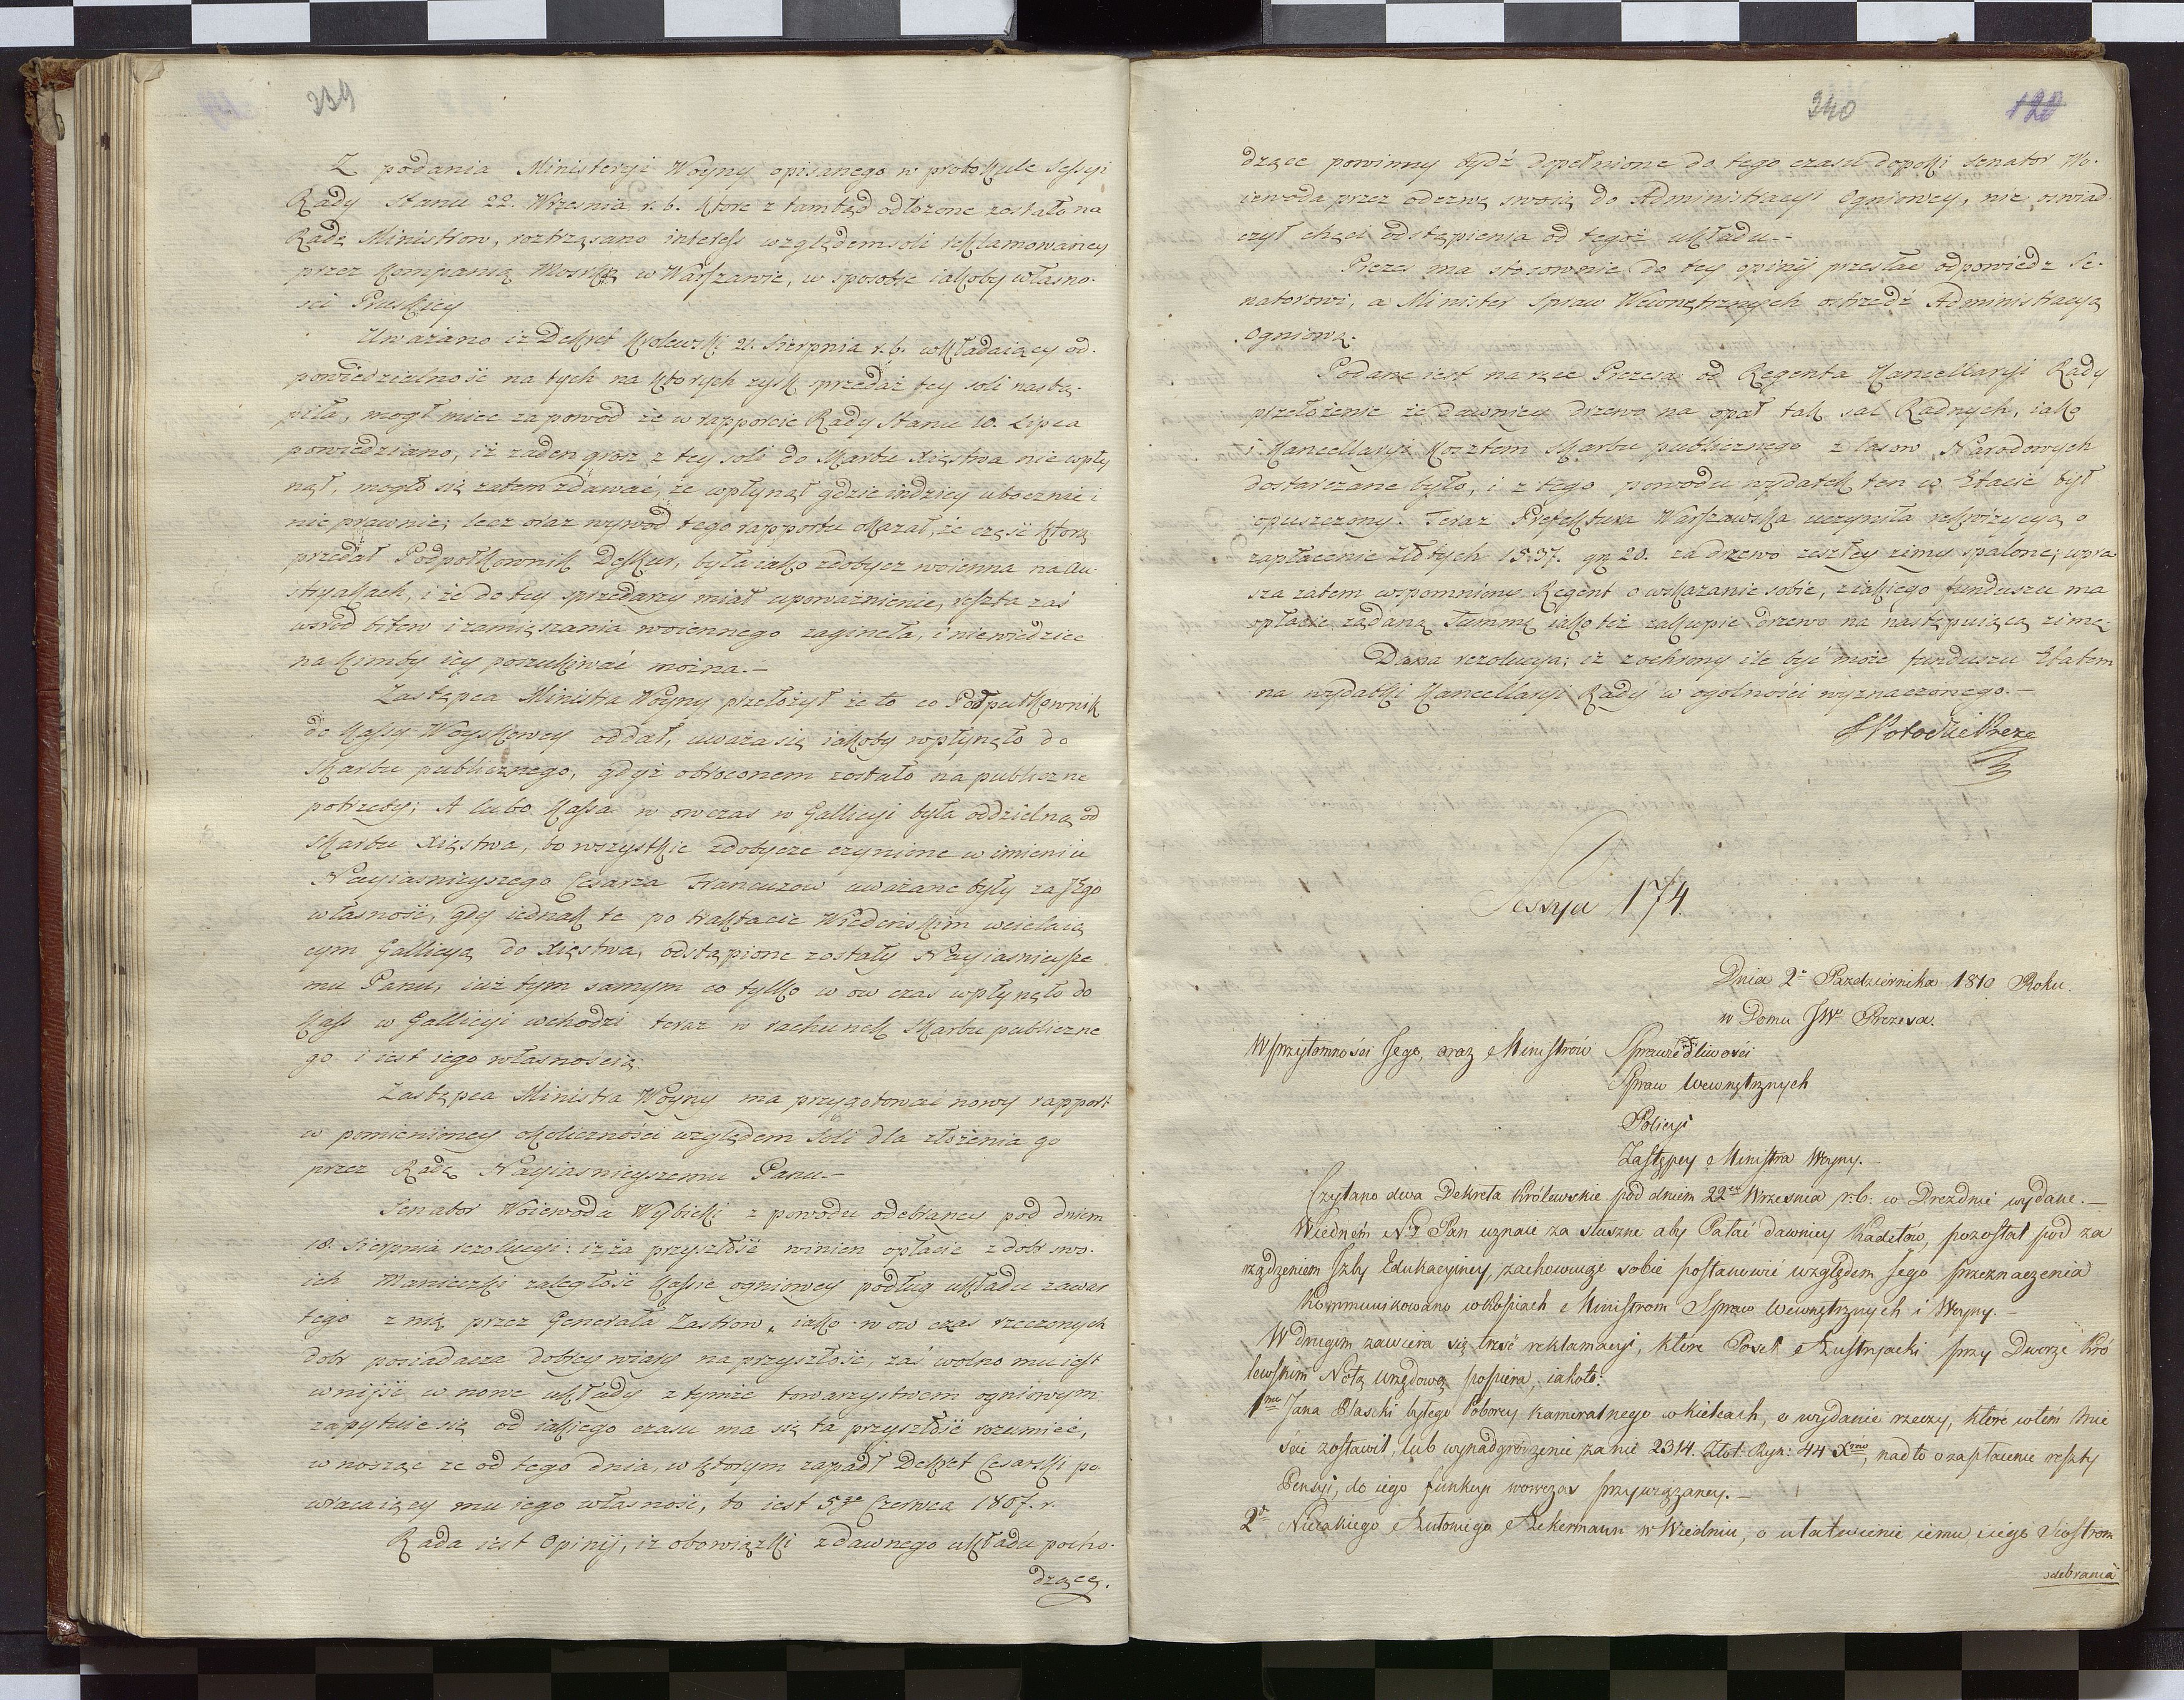 239
Z podania Ministeryi Woyny opisanego w protokule Sessyi
Rady Stanu 22. Wrzesnia r. b. ktore z tamtąd odłożone zostało na
Radę Ministrow, roztrząsano interess względem soli reklamowaney
przez kompanią Morską w Warszawie, w sposobie iakoby własno-
sci Pruskiey
Uważano iż Dekret Krolewski 21. Sierpnia r. b. wkładaiący od-
powiedzielność na tych na ktorych zysk przedaż tey soli nastą-
piła, mogł miec za powod że w rapporcie Rady Stanu 10. Lipca
powiedziano, iż żaden grosz z tey soli do Skarbu Xięstwa nie wpły
nął, mogło się zatem zdawać, że wpłynął gdzie indziey ubocznie i
nie prawnie; lecz oraz wywod tego rapportu okazał, że część ktorą
przedał Podpołkownik Deskur, była iako zdobycz woienna na Au-
stryakach, i że do tey sprzedarzy miał upoważnienie, reszta zaś
wsrod bitew i zamięszania woiennego zagineła, i niewiedziec
na kimby iey poszukiwać można.—
Zastępca Ministra Woyny przełożył że to co Połpułkownik
do kassy Woyskowey oddał, uważa się iakoby wpłynęło do
Skarbu publicznego, gdyż obroconem zostało na publiczne
potrzeby; A lubo kassa w owczas w Gallicyi była oddzielną od
Skarbu Xięstwa, bo wszystkie zdobycze czynione w imieniu
Nayiasnieyszego Cesarza Francuzow uważane były za Jego
własność, gdy iednak te po traktacie Wiedeńskim wcielaią
cym Gallicyą do Xięstwa, odstąpione zostały Nayiasnieysze
mu Panu, iuż tym samym co tylko w ow czas wpłynęło do
kass w Gallicyi wchodzi teraz w rachunek Skarbu publiczne
go i iest iego własnością.
Zastępca Ministra Woyny ma przygotować nowy rapport
w pomienioney okoliczności względem Soli dla złożenia go
przez Radę Nayiasnieyszemu Panu.—
Senator Woiewoda Wybicki z powodu odebraney pod dniem
18. Sierpnia rezolucyi: iż za przyszłość winien opłacic z dobr swo-
ich Manieczki zaległość kassie ogniowey podług układu zawar
tego z nią przez Generała Zastrow, iako w ow czas rzeczonych
dobr posiadacza dobrey wiary na przyszłość, zaś wolno mu iest
wnijść w nowe układy z tymże towarzystwem ogniowym
zapytuie się od iakiego czasu ma się ta przyszłość rozumieć,
wnosząc że od tego dnia, w ktorym zapadł Dekret Cesarski po
wracaiący mu iego własność, to iest 5go Czerwca 1807. r.
Rada iest Opinij, iż obowiązki z dawnego układu pocho-
dzące.
240 120
dzące powinny bydź dopełnione do tego czasu dopoki Senator Wo-
iewoda przez odezwę swoią do Administracyi Ogniowey, nie oswiad
czył chęci odstąpienia od tegoż układu.—
Prezes ma stosownie do tey opinij przesłac odpowiedz Se-
natorowi, a Minister Spraw Wewnętrznych ostrzedź Administracyą
Ogniową.
Podane iest na ręce Prezesa od Regenta Kancellaryi Rady
przełożenie że dawniey drzewo na opał tak sal Radnych, iako
i Kancellaryi kosztem Skarbu publicznego z lasow Narodowych
dostarczane było, i z tego powodu wydatek ten w Etacie był
opuszczony. Teraz Prefektura Warszawska uczyniła rekwizycyą o
zapłacenie złotych 1537. gr 20. za drzewo zeszłey zimy spalone; upra
sza zatem wspomniony Regent o wskazanie sobie, z iakiego funduszu ma
opłacic żądaną Summę iako też zakupic drzewo na następuiącą zimę.
Dana rezolucya; iż z ochrony ile być może funduszu Etatem
na wydatki Kancellaryi Rady w ogolności wyznaczonego.—
SPotocki Preze
Sessya 174.
Dnia 2o Pazdziernika 1810 Roku.
w Domu JWo Prezesa.
W przytomności Jego, oraz Ministrów Sprawiedliwości
Spraw Wewnętrznych
Policyi
Zastępcy Ministra Woyny.—
Czytano dwa Dekreta Królewskie pod dniem 22em Wrzesnia r: b: w Dreznie wydane.—
W iednem N. Pan uznaie za słuszne aby Pałac dawniey Kadetów, pozostał pod za
rządzeniem Izby Edukacyiney, zachowuiąc sobie postanowić względem Jego przeznaczenia
Kommunikowano w kopiach Ministrom Spraw Wewnętrznych i Woyny.—
W drugim zawiera się treść reklamacyi, które Poseł Austryacki przy Dworze Kró
lewskim Notą urzędową popiera, iakoto:
1mo Jana Blaschi byłego Poborcy kameralnego w Kielcach, o wydanie rzeczy, które w tem Mie
ście zostawił, lub wynadgrodzenie za nie 2314. Złot. Ryn: 44 Xrów, nad to o zapłacenie reszty
Pensyi, do iego funkcyi wowczas przywiązaney.—
2do Nieiakiego Antoniego Ackermann w Wiedniu, o ułatwienie iemu, i iego Siostrom
odebrania